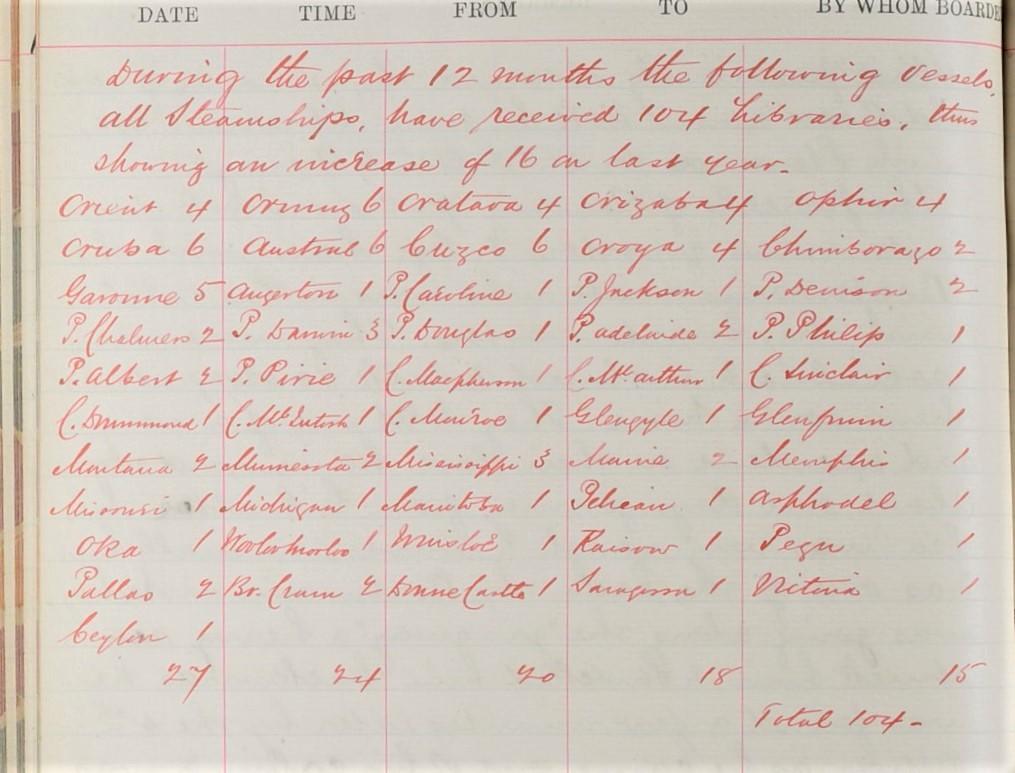 DATE TIME FROM TO BY WHOM BOARDE
During the past 12 months the following vessels,
all Steamships, have received 104 Libraries, thus
showing an increase of 16 on last year.
Orient 4 Ormuz 6 Oratava 4 Orizaba 4 Ophir 4
Oruba 6 Austral 6 Cuzco 6 Oroya 4 Chimborazo 2
Garonne 5 Angerton 1 P. Caroline 1 P. Jackson 1 P. Denison 2
P. Chalmers 2 P. Darwin 3 P. Douglas 1 P. Adelaide 2 P. Philip 1
P. Albert 2 P. Pirie 1 C. Macpherson 1 C. McArthur 1 C. Sinclair 1
C. Drummond 1 C. McIntosh 1 C. Munroe 1 Glengyle 1 Glenfruin 1
Montana 2 Minnesota 2 Mississippi 3 Maine 2 Memphis 1
Missouri 1 Michigan 1 Manitoba 1 Pelican 1 Asphodel 1
Oka 1 Woolloomooloo 1 1 Raisow 1 Pegu 1
Pallas 2 Br. Crown 2 Dunne Castle 1 Saragossa 1 Victoria 1
Ceylon 1
27 24 20 18 15
Total 104-